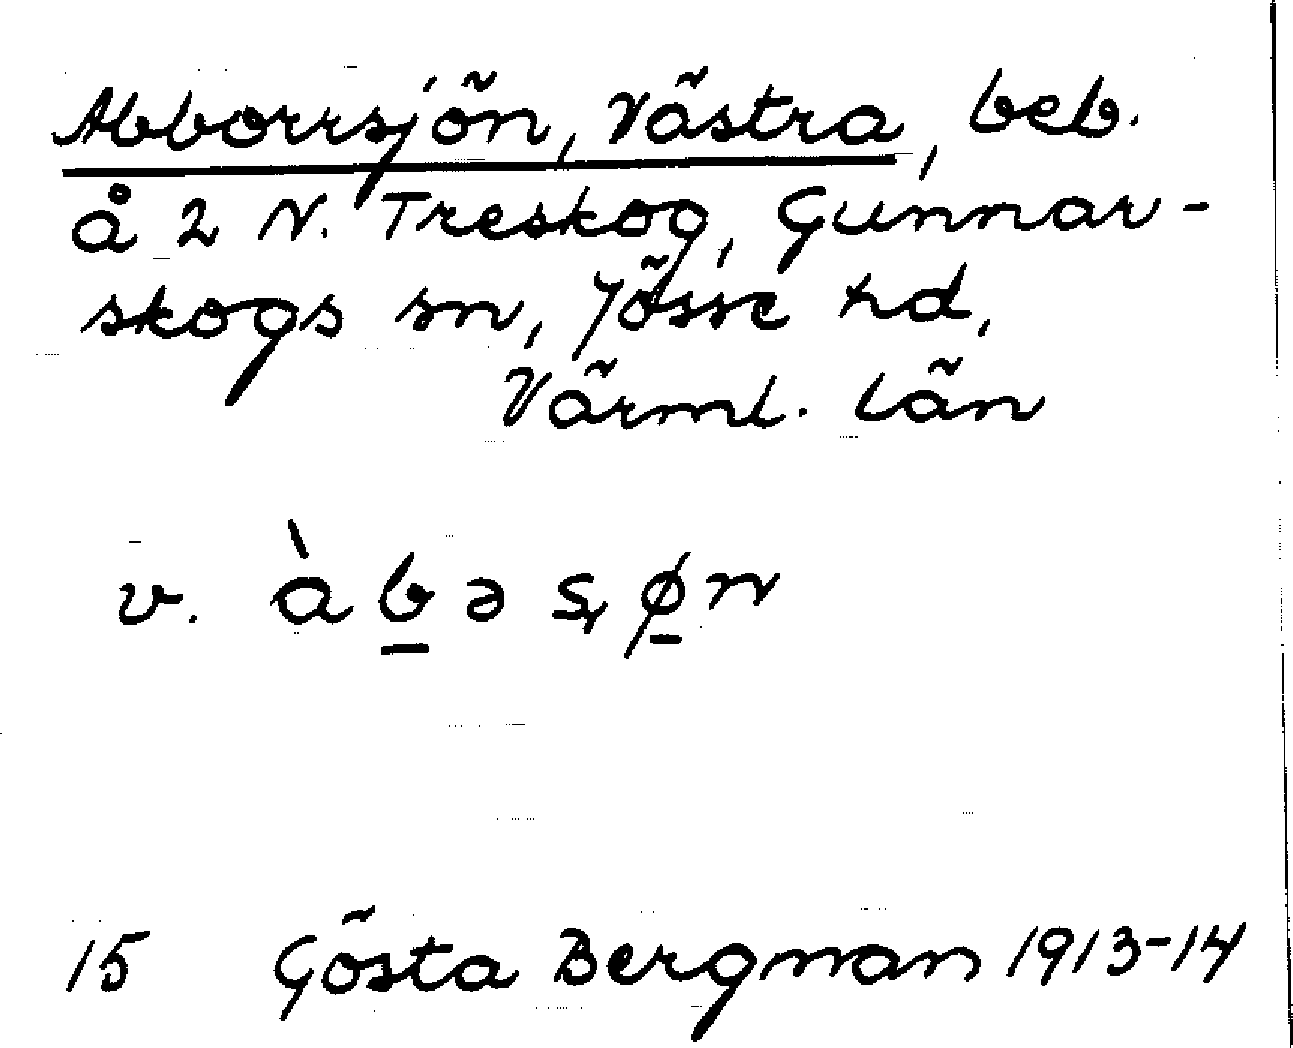 Abborrsjön, Västra, beb.
å 2 N. Treskog, Gunnar-
skogs sn, Jösse hd,
Värml. län
v. àb̲ə ʂø̲n
15 Gösta Bergman 1913-14